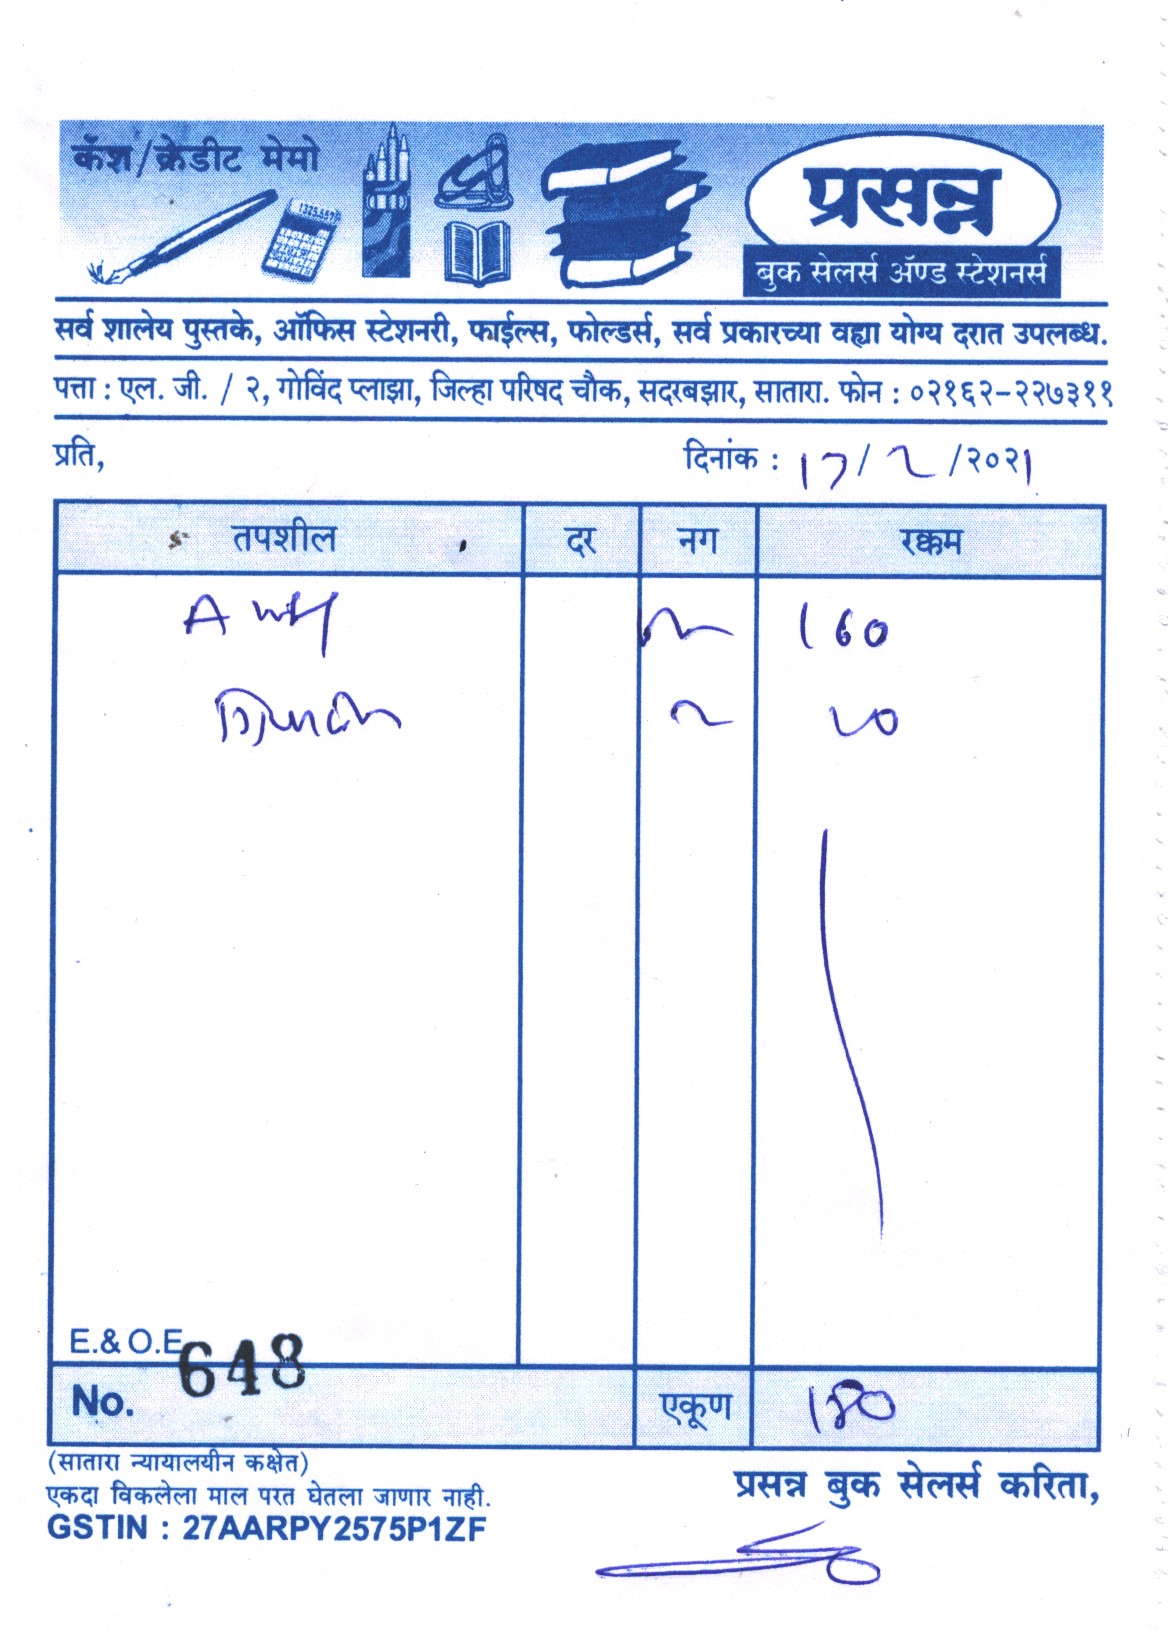 कॅश/क्रेडीट मेमो
प्रसन्न
बुक सेलर्स ॲण्ड स्टेशनर्स
सर्व शालेय पुस्तके, ऑफिस स्टेशनरी, फाईल्स, फोल्डर्स, सर्व प्रकारच्या वह्या योग्य दरात उपलब्ध.
पत्ता : एल. जी. / २, गोविंद प्लाझा, जिल्हा परिषद चौक, सदरबझार, सातारा. फोन : ०२१६२-२२७३११
प्रति, दिनांक : 17/2/२०२1
तपशील दर नग रक्कम
160
20
E.& O.E.
No. 648 एकूण 180
(सातारा न्यायालयीन कक्षेत)
एकदा विकलेला माल परत घेतला जाणार नाही.
GSTIN : 27AARPY2575P1ZF
प्रसन्न बुक सेलर्स करिता,